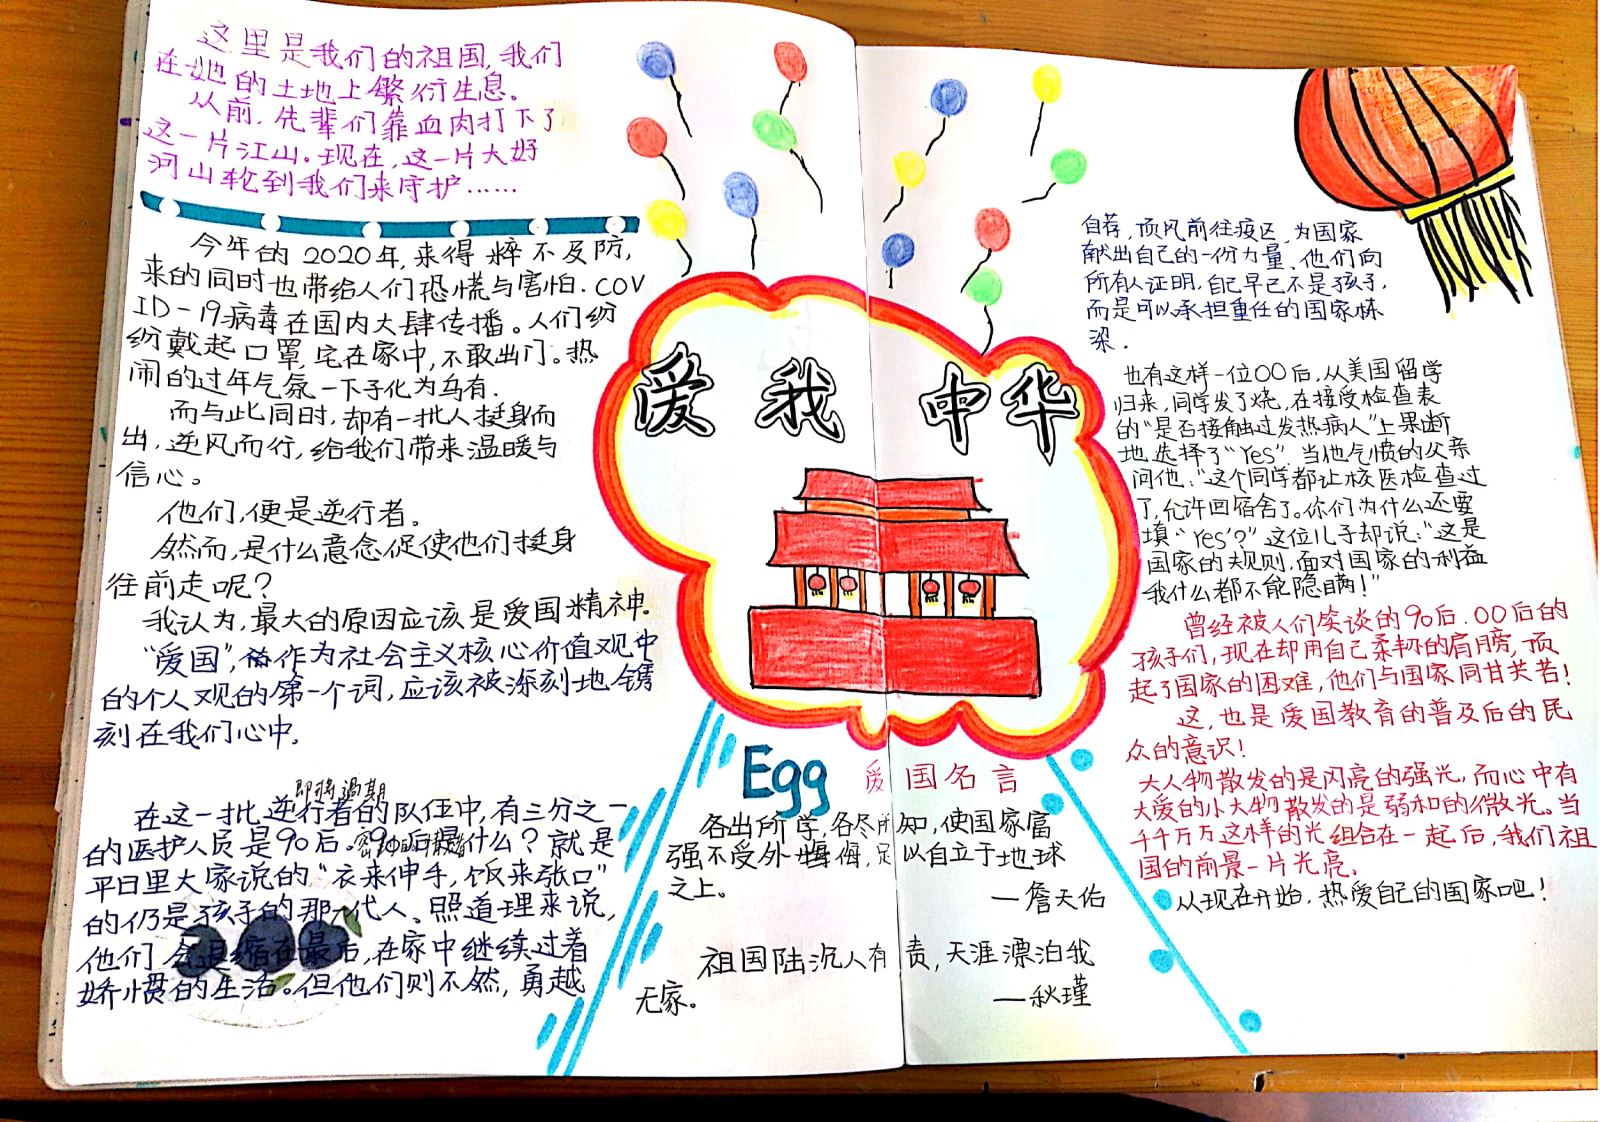 这里是我们的祖国,我们
在她的土地上繁衍生息。
从前,先辈们靠血肉打下了
这一片江山。现在,这一片大好
河山轮到我们来守护……
今年的2020年,来得猝不及防,
来的同时也带给人们恐慌与害怕.COV
ID-19病毒在国内大肆传播。人们纷
纷戴起口罩,宅在家中,不敢出门。热
闹的过年气氛一下子化为乌有.
而与此同时,却有一批人挺身而
出,逆风而行,给我们带来温暖与
信心。
他们,便是逆行者。
然而,是什么意念促使他们挺身
往前走呢?
我认为,最大的原因应该是爱国精神.
“爱国”,作为社会主义核心价值观中
的个人观的第一个词,应该被深刻地镌
刻在我们心中。
即将过期
在这一批逆行者的队伍中,有三分之一
的医护人员是90后。90后是什么?就是
平日里大家说的“衣来伸手,饭来张口”
的仍是孩子的那一代人。照道理来说,
他们会退缩在最后,在家中继续过着
娇惯的生活。但他们则不然,勇越
爱我中华
Egg 爱国名言
各出所学,各尽所知,使国家富
强不受外侮,足以自立于地球
之上。
—詹天佑
祖国陆沉人有责,天涯漂泊我
无家。
—秋瑾
自荐,顶风前往疫区,为国家
献出自己的一份力量.他们向
所有人证明,自己早已不是孩子,
而是可以承担重任的国家栋
梁.
也有这样一位00后,从美国留学
归来,同学发了烧,在接受检查表
的“是否接触过发热病人”上果断
地选择了“Yes”.当他气愤的父亲
问他:“这个同学都让校医检查过
了,允许回宿舍了。你们为什么还要
填“Yes”?”这位儿子却说:“这是
国家的规则,面对国家的利益
我什么都不能隐瞒!”
曾经被人们笑谈的90后.00后的
孩子们,现在却用自己柔韧的肩膀,顶
起了国家的困难,他们与国家同甘共苦!
这,也是爱国教育的普及后的民
众的意识!
大人物散发的是闪亮的强光,而心中有
大爱的小人物散发的是弱和的微光。当
千千万万这样的光组合在一起后,我们祖
国的前景一片光亮.
从现在开始,热爱自己的国家吧!